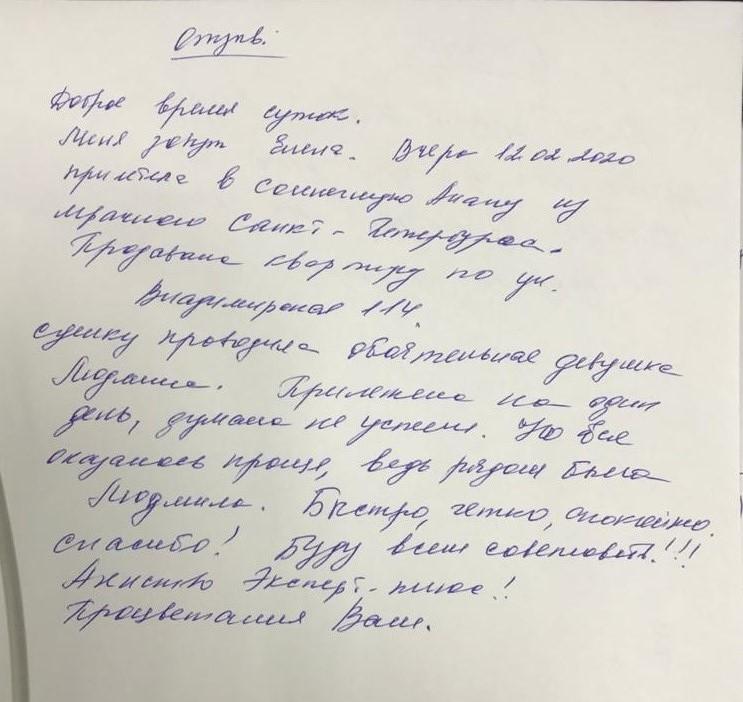 Отзыв.
Доброе время суток.
Меня зовут Елена. Вчера 12.02.2020
прилетела в солнечную Анапу из
мрачного Санкт-Петербурга.
Продавала квартиру по ул.
Владимирская 114.
сделку проводила обаятельная девушка
Людмила. Прилетела на один
день, думала не успеем. Но всё
оказалось проще, ведь рядом была
Людмила. Быстро, четко, спокойно.
спасибо! Буду всем советовать!!!
Агентство Эксперт-плюс!
Процветания Вам.